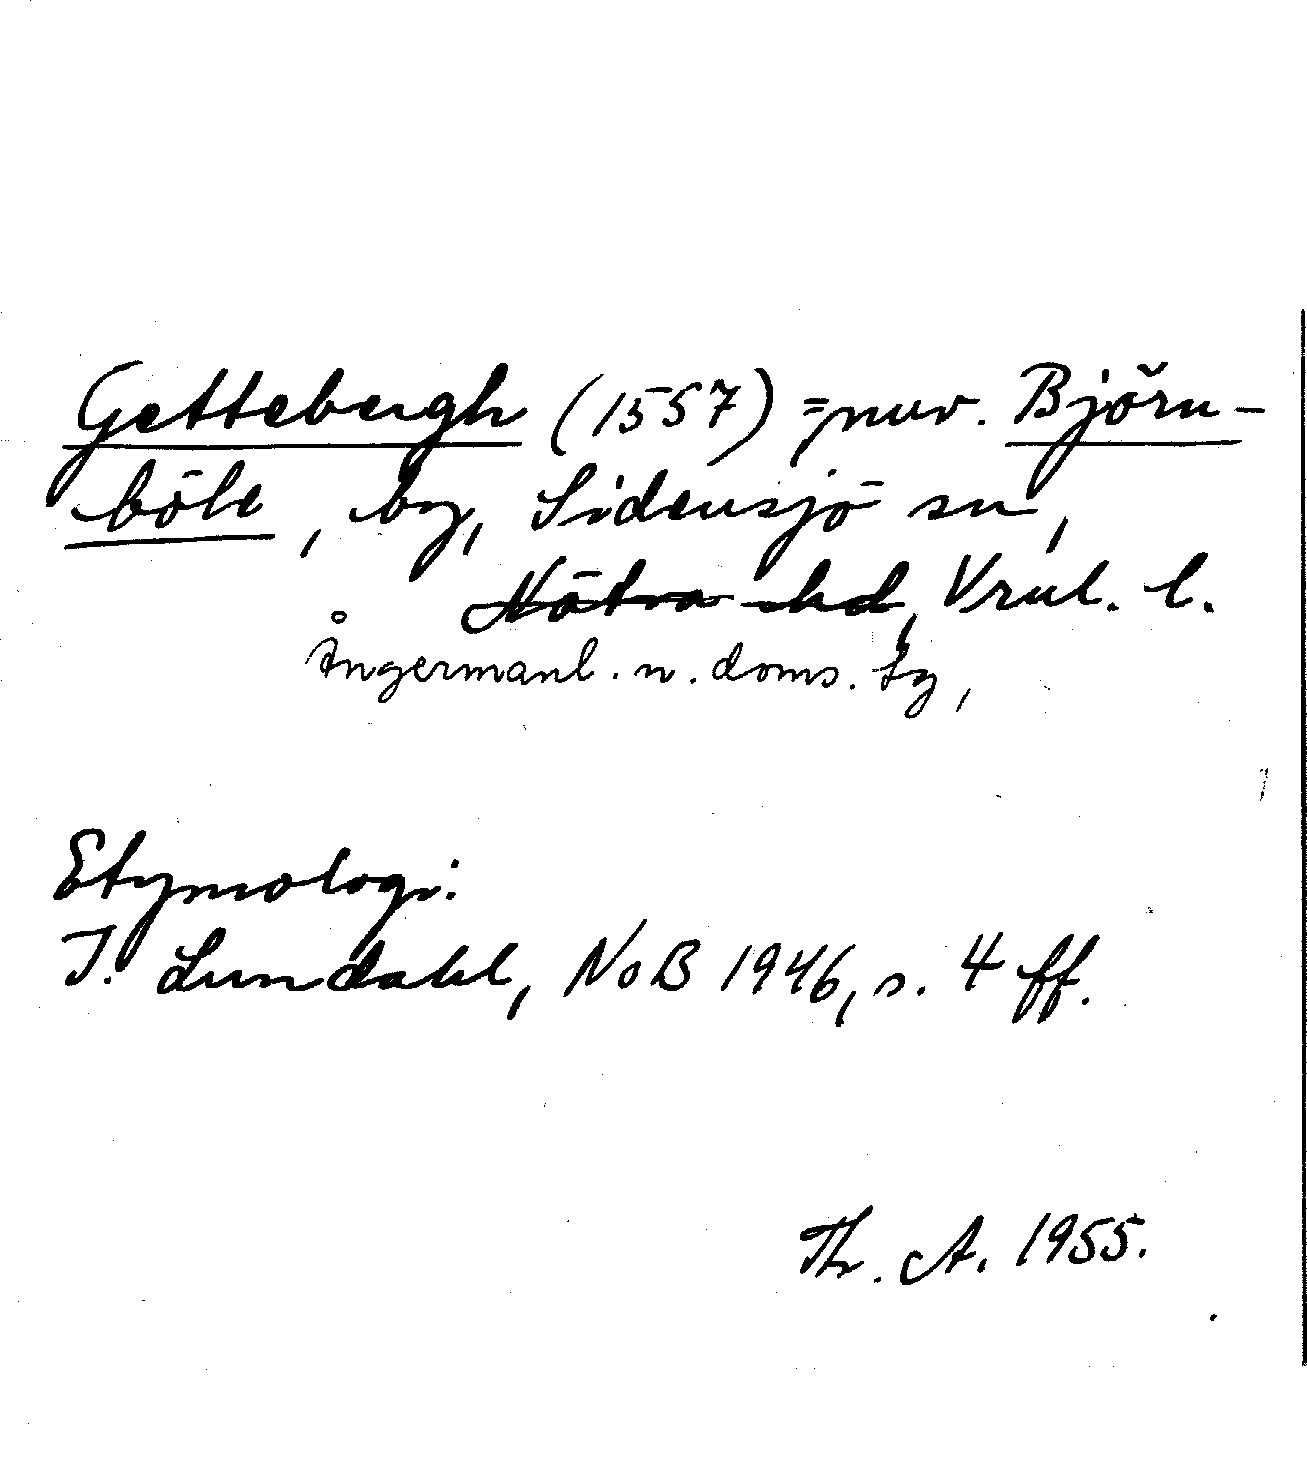 Gettebergh (1557) = nuv. Björn-
böle, by, Sidensjö sn,
Nätra hd, Vrnl. l.
Ångermanl. n. doms. tg,
Etymologi:
I. Lundahl, NoB 1946, s. 4 ff.
Th. A. 1955.